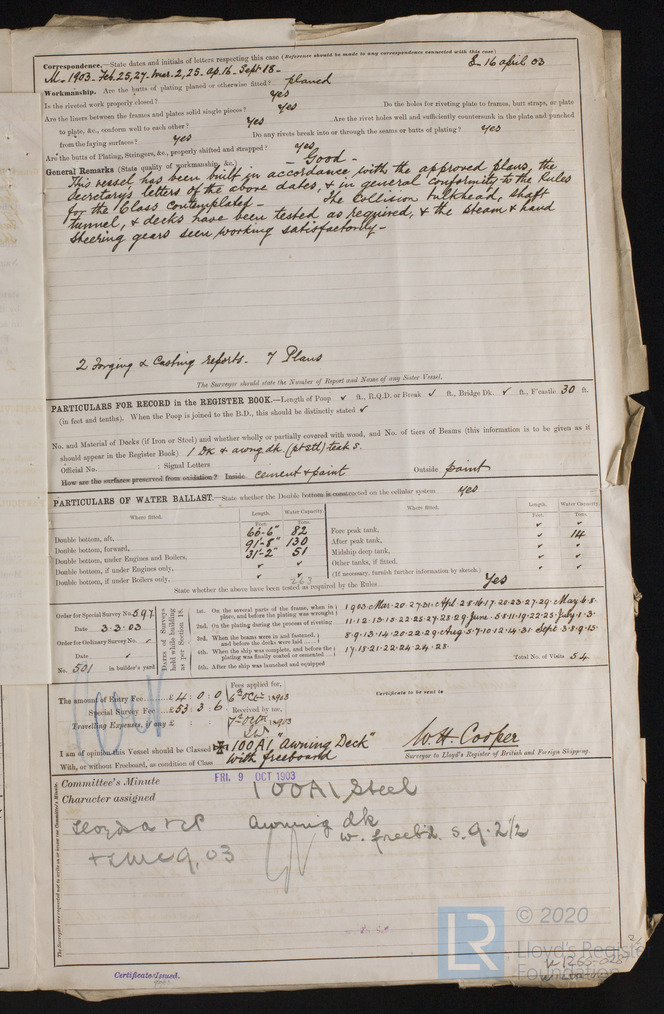 Correspondence.—State dates and initials of letters respecting this case (Reference should be made to any correspondence connected with this case)
M- 1903- Feb. 25, 27. Mar. 2, 25. Ap. 16. Sept 18- 16 april 03
Workmanship. Are the butts of plating planed or otherwise fitted? planed
Is the riveted work properly closed? Yes
Are the liners between the frames and plates solid single pieces? Yes Do the holes for riveting plate to frames, butt straps, or plate
to plate, &c., conform well to each other? Yes Are the rivet holes well and sufficiently countersunk in the plate and punched
from the faying surfaces? Yes Do any rivets break into or through the seams or butts of plating? Yes
Are the butts of Plating, Stringers, &c., properly shifted and strapped? Yes
General Remarks (State quality of workmanship, &c.) - Good -
This vessel has been built in accordance with the approved plans, the
Secretary's letters of the above dates, & in general conformity to the Rules
for the Class contemplated - The Collision bulkhead, shaft
tunnel, & decks have been tested as required, & the steam & hand
steering gears seen working satisfactorily -
2 Forging & Casting reports. 7 Plans
The Surveyor should state the Number of Report and Name of any Sister Vessel.
PARTICULARS FOR RECORD in the REGISTER BOOK.—Length of Poop ✓ ft., R.Q.D. or Break ✓ ft., Bridge Dk. ✓ ft., F'castle 30 ft.
(in feet and tenths). When the Poop is joined to the B.D., this should be distinctly stated ✓
No. and Material of Decks (if Iron or Steel) and whether wholly or partially covered with wood, and No. of tiers of Beams (this information is to be given as it
should appear in the Register Book) 1 Dk & awng dk (pt stl) teak s.
Official No. : Signal Letters
How are the surfaces preserved from oxidation? Inside cement & paint Outside paint
PARTICULARS OF WATER BALLAST.—State whether the Double bottom is constructed on the cellular system Yes
Where fitted. Length. Water Capacity. Where fitted. Length. Water Capacity.
Feet. Tons. Feet. Tons.
Double bottom, aft, 60-6" 82 Fore peak tank, ✓ ✓
Double bottom, forward, 91-8" 130 After peak tank, ✓ 14
Double bottom, under Engines and Boilers, 31-2" 51 Midship deep tank, ✓ ✓
Double bottom, if under Engines only, ✓ ✓ Other tanks, if fitted, ✓ ✓
Double bottom, if under Boilers only, ✓ ✓ (If necessary, furnish further information by sketch.)
263
State whether the above have been tested as required by the Rules Yes
Order for Special Survey No. 597
Date 3-3-03
Order for Ordinary Survey No. ✓
Date ✓
No. 501 in builder's yard
Dates of Surveys held while building as per Section 18.
1st. On the several parts of the frame, when in place, and before the plating was wrought
2nd. On the plating during the process of riveting
3rd. When the beams were in and fastened, and before the decks were laid
4th. When the ship was complete, and before the plating was finally coated or cemented
5th. After the ship was launched and equipped
1903 Mar. 20. 27. 31. Apl. 2. 8. 16. 17. 20. 23. 27. 29. May 6. 8.
11. 12. 13. 15. 22. 25. 27. 28. 29 June. 5. 8. 11. 19. 22. 25. July. 1. 3.
8. 9. 13. 14. 20. 22. 29. Aug. 5. 7. 10. 12. 14. 31 Sept. 3. 8. 9. 15.
17. 18. 21. 22. 24. 24. 28.
Total No. of Visits 54
The amount of Entry Fee £ 4 : 0 : 0 Fees applied for,
6th Oct 1903
Special Survey Fee £53 : 3 : 6 Received by me,
Travelling Expenses, if any £ : : 7th Oct 1903
Certificate to be sent to
I am of opinion this Vessel should be Classed ✠ 100A1 "Awning Deck"
With, or without Freeboard, as condition of Class with freeboard
W. H. Cooper
Surveyor to Lloyd's Register of British and Foreign Shipping.
Committee's Minute FRI. 9 OCT 1903
Character assigned 100A1 Steel
Lloyds A & CP Awning dk
w. freebd. s. 9. 2 1/2
+ LMC 9, 03
The Surveyors are requested not to write on or below the Committee's Minute.
Certificate Issued.
LR © 2020
Lloyd's Register
Foundation